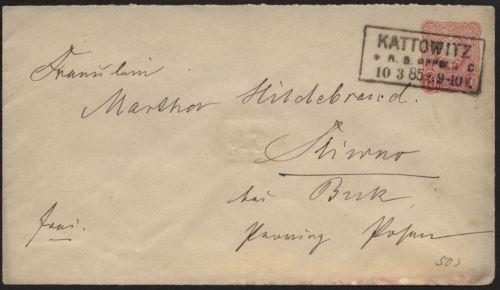 KATTOWITZ
* R. B. OPPELN C
10 3 85 9-10
Fräulein
Martha Hildebrand.
bei Buk
frei.
Provinz Posen
503